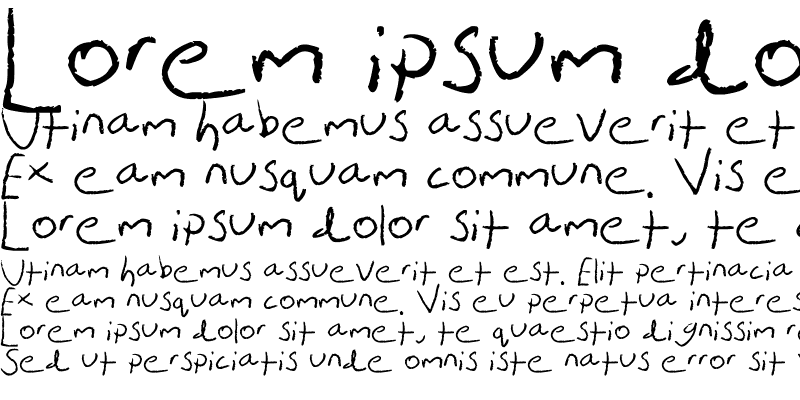 Lorem ipsum do
Utinam habemus assueverit et
Ex eam nusquam commune. Vis e
Lorem ipsum dolor sit amet, te
Utinam habemus assueverit et est. Elit pertinacia
Ex eam nusquam commune. Vis eu perpetua interes
Lorem ipsum dolor sit amet, te quaestio dignissim r
Sed ut perspiciatis unde omnis iste natus error sit